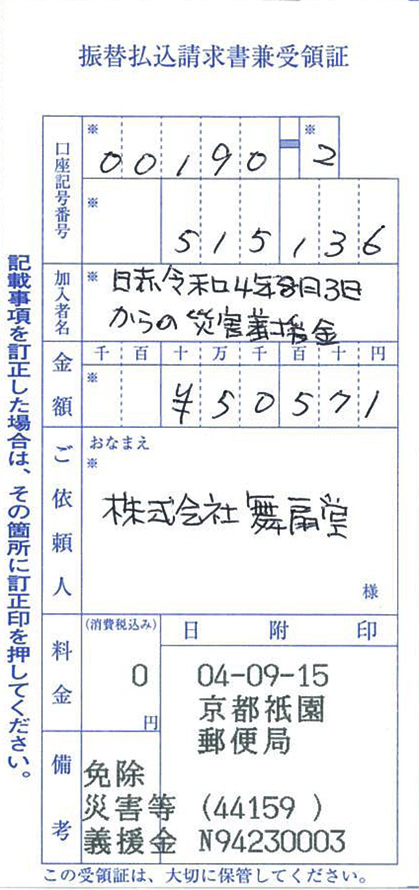 振替払込請求書兼受領証
口座記号番号
※ 00190-※ 2
※ 515136
加入者名
※ 日赤令和4年8月3日
からの災害義援金
金額
千 百 十 万 千 百 十 円
※ ¥50571
ご依頼人
おなまえ
※
株式会社舞扇堂
様
料金
(消費税込み)
0
円
日 附 印
04-09-15
京都祇園
郵便局
備考
免除
災害等 (44159 )
義援金 N94230003
この受領証は、大切に保管してください。
記載事項を訂正した場合は、その箇所に訂正印を押してください。